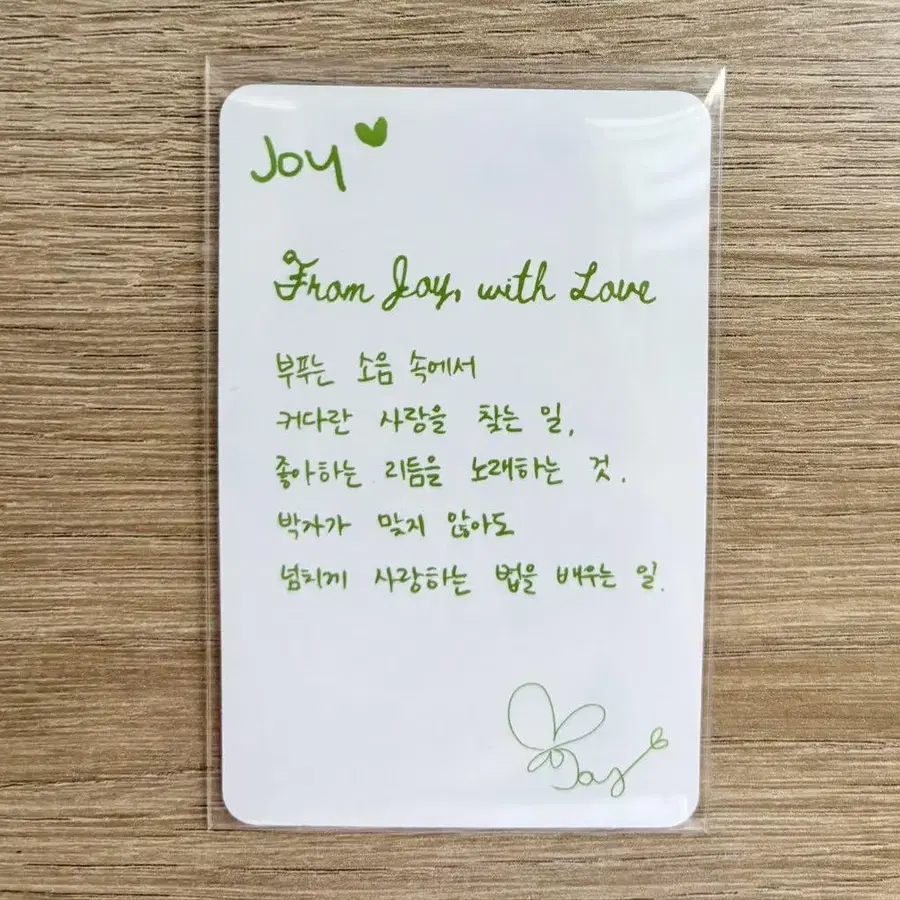 Joy
From Joy, with Love
부푸는 소음 속에서
커다란 사랑을 찾는 일,
좋아하는 리듬을 노래하는 것.
박자가 맞지 않아도
넘치게 사랑하는 법을 배우는 일.
Joy